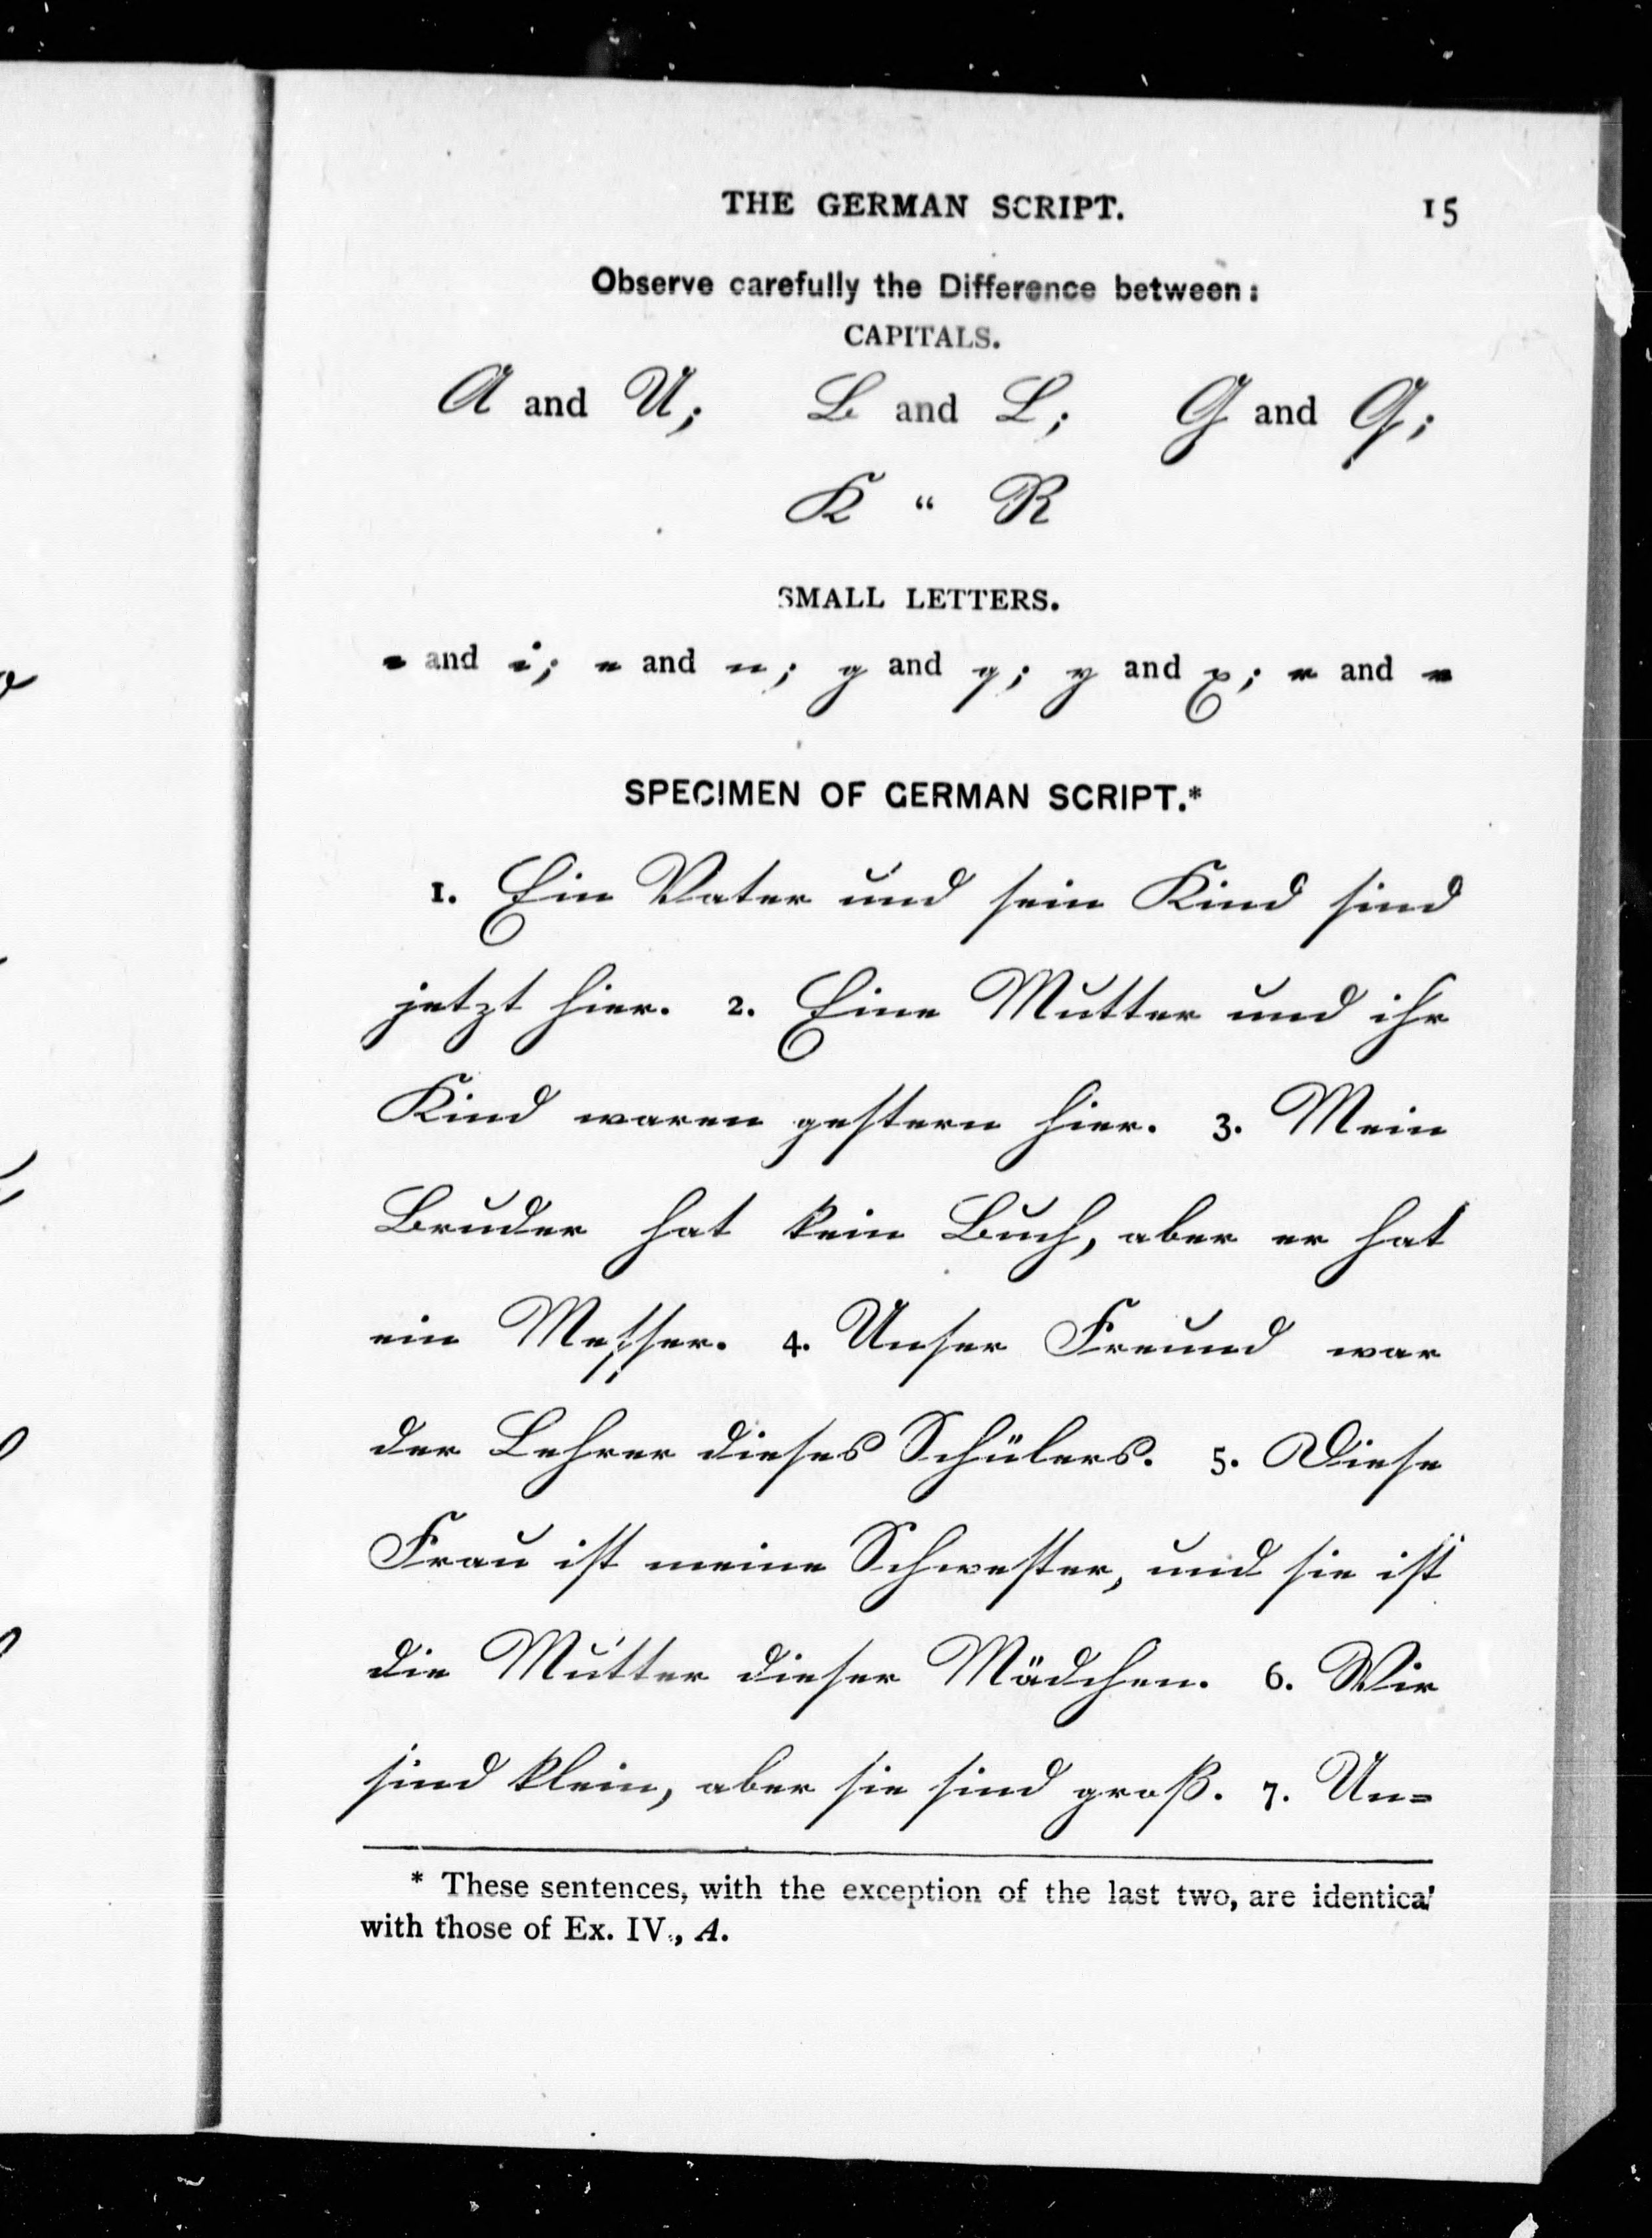 THE GERMAN SCRIPT. 15
Observe carefully the Difference between:
CAPITALS.
A and U; B and L; G and Q;
K “ R
SMALL LETTERS.
e and i; e and n; g and q; y and x; r and v
SPECIMEN OF GERMAN SCRIPT.*
1. Ein Vater und sein Kind sind
jetzt hier. 2. Eine Mutter und ihr
Kind waren gestern hier. 3. Mein
Bruder hat kein Buch, aber er hat
ein Messer. 4. Unser Freund war
der Lehrer dieses Schülers. 5. Diese
Frau ist meine Schwester, und sie ist
die Mutter dieser Mädchen. 6. Wir
sind klein, aber sie sind groß. 7. Un=
* These sentences, with the exception of the last two, are identical
with those of Ex. IV., A.